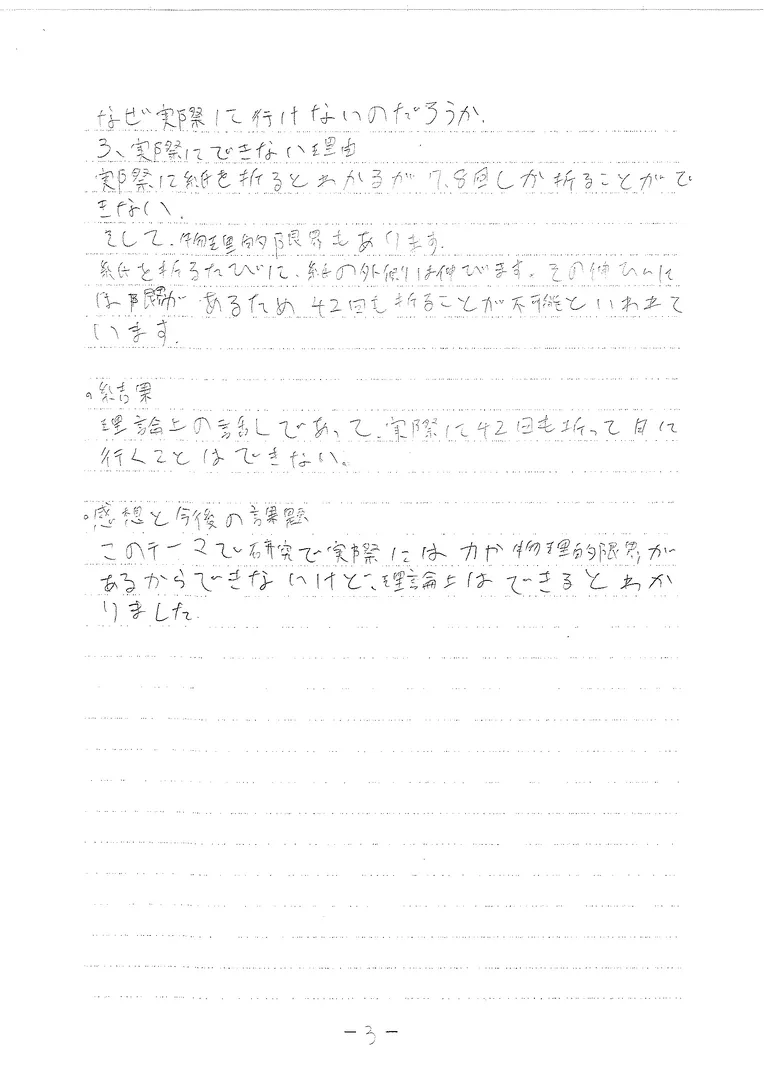 なぜ実際に行けないのだろうか.
3、実際にできない理由
実際に紙を折るとわかるが7、8回しか折ることがで
きない.
そして、物理的限界もあります.
紙を折るたびに、紙の外側は伸びます。その伸びに
は限界があるため42回も折ることが不可能といわれて
います.
。結果
理論上の話しであって、実際に42回も折って月に
行くことはできない。
。感想と今後の課題
このテーマで研究で実際には力や物理的限界が
あるからできないけど、理論上はできるとわか
りました.
-3-